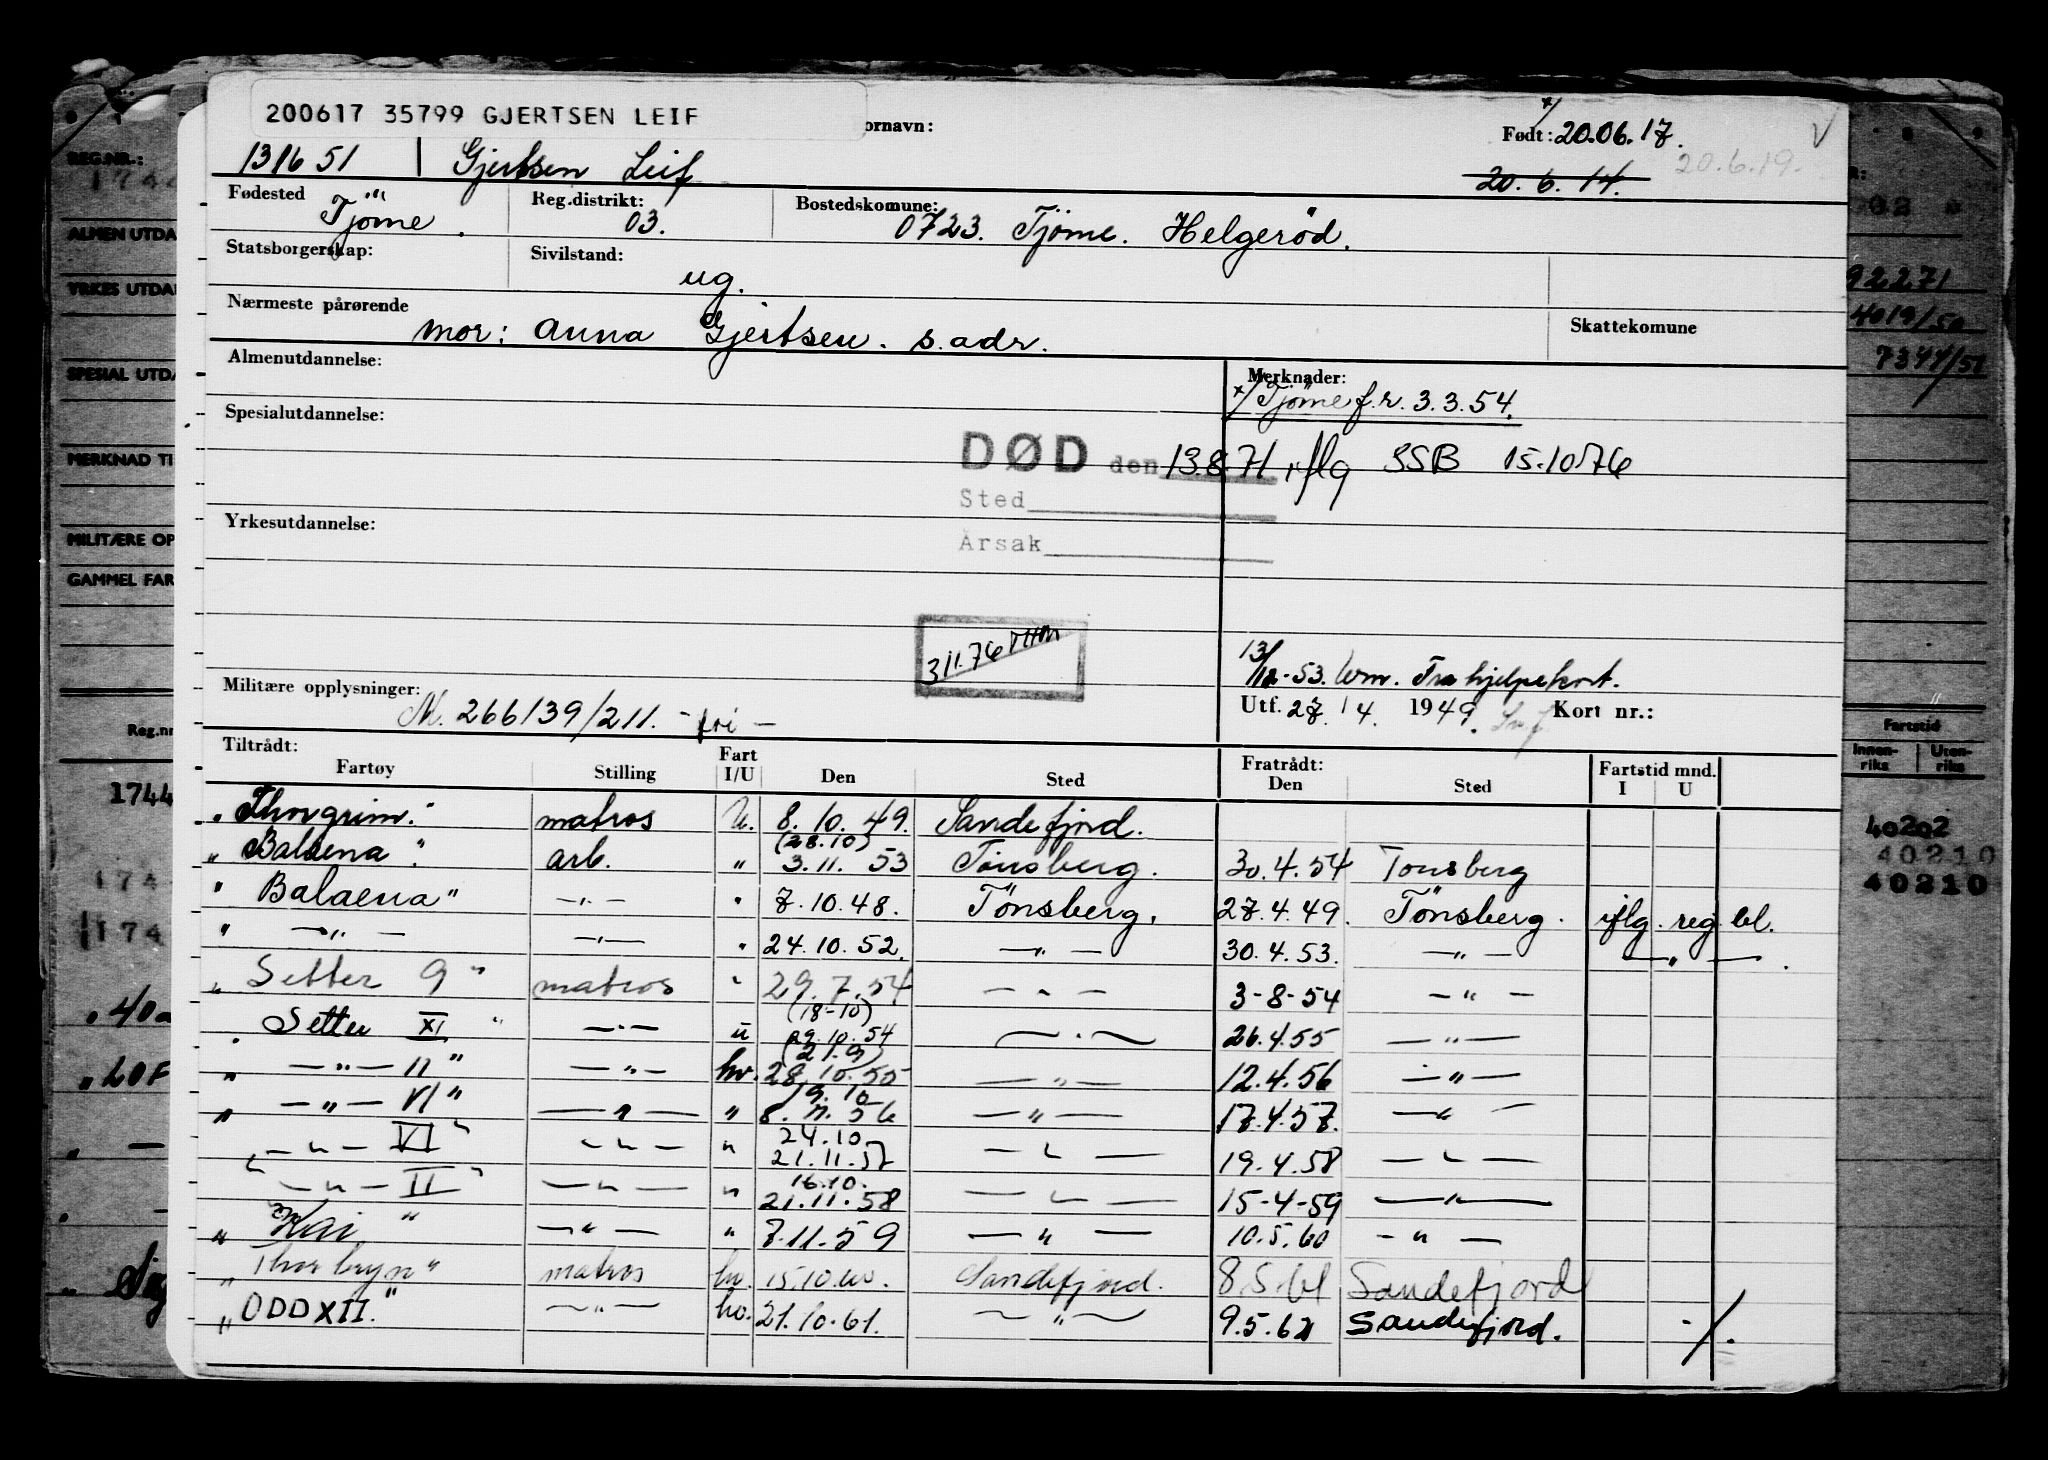 200617 35799 GJERTSEN LEIF
ornavn:
Født: 20.06.17.
131651 Gjertsen Leif
20.6.14. 20.6.19.
Fødested Tjöme. Reg.distrikt: 03. Bostedskomune: 0723. Tjöme. Helgeröd.
Statsborgerskap: Sivilstand: ug.
Nærmeste pårørende mor: Anna Gjertsen. s. adr. Skattekomune
Almenutdannelse: Merknader:
x/ Tjöme f.r. 3.3.54.
Spesialutdannelse:
DØD den 13.8.71 iflg SSB 15.10 76
Sted
Yrkesutdannelse:
Årsak
311.76
13/12-53. Fra hjelpekort.
Militære opplysninger: M. 266139/211. - fri -
Utf. 27/4. 1949. Kort nr.:
Tiltrådt: Fratrådt:
Fartøy Stilling Fart I/U Den Sted Den Sted Fartstid mnd. I U
"Thorgrim." matros U. 8.10.49. Sandefjord.
"Balaena". arb. " (28.10) 3.11.53 Tönsberg. 30.4.54 Tonsberg
"Balaena" -"- " 7.10.48. Tönsberg. 27.4.49. Tönsberg. iflg. reg. bl.
" -"- -"- " 24.10.52. -"- 30.4.53. -"- -"- .
"Setter 9" matros " 29.7.54 -"- 3-8-54 -"-
"Setter XI" -"- u (18-10) 29.10.54 -"- 26.4.55 -"-
" -"- II" -"- hv. (21.9) 28.10.55 -"- 12.4.56 -"-
" -"- VI" -"- " 19.10 8.11.56 -"- 17.4.57. -"-
" -"- VI" -"- " 24.10 21.11.57 -"- 19.4.58 -"-
" -"- II" -"- " 16.10. 21.11.58 -"- 15-4-59 -"-
"Kai" -"- " 7.11.59 -"- 10.5.60 -"-
"Thorbryn" matros hv. 15.10.60. Sandefjord. 8.5.61 Sandefjord
"ODD XII." -"- hv. 21.10.61. -"- 9.5.62 Sandefjord. -/.
REG.NR.:
ALMEN UTDA
YRKES UTDA
SPESIAL UTDA
MERKNAD TI
MILITÆRE OP
GAMMEL FAR
Reg.nr
1744
174
174
92271
4019/50
7344/51
Fartstid
Innenriks Utenriks
40202
40210
40210